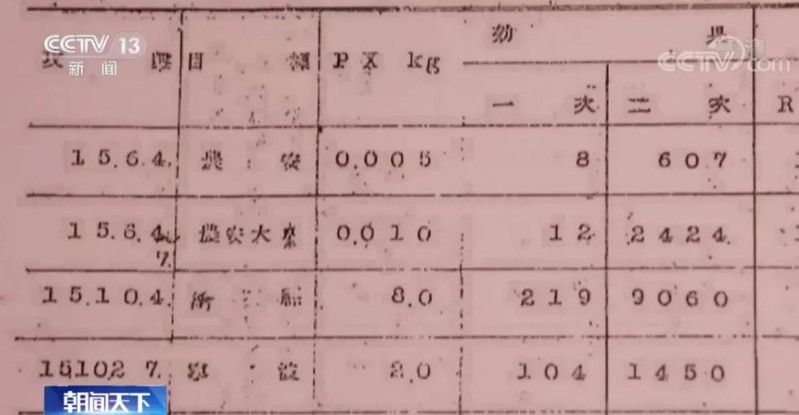 CCTV 13
新闻
CCTV.com
効 果
段 目 標 PX kg
一 次 二 次 R
15.6.4. 農 安 0.005 8 607
15.6.4. 農安大 0.010 12 2424
7.
15.10.4. 8.0 219 9060
15102 7. 寧 波 2.0 104 1450
朝闻天下